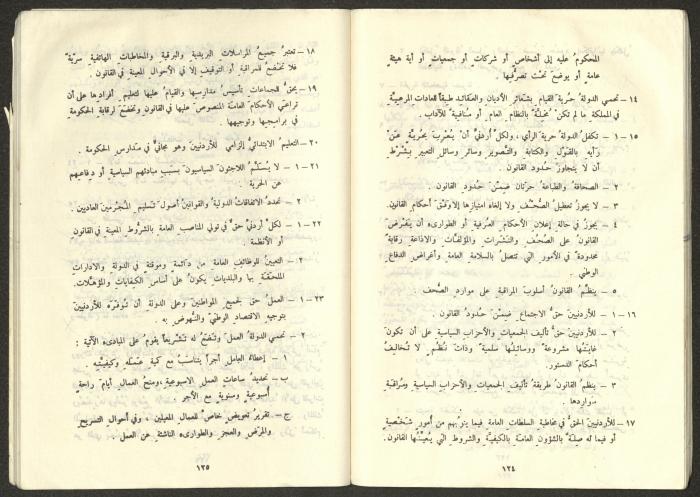 المحكوم عليه إلى أشخاص أو شركات أو جمعيات أو أية هيئة
عامة أو يوضع تحت تصرفها .
١٤ – تحمي الدولة حرية القيام بشعائر الأديان والعقائد طبقاً للعادات المرعية
في المملكة ما لم تكن مخلة بالنظام العام أو منافية للآداب .
١٥ – ١ – تكفل الدولة حرية الرأي ، ولكل أردني أن يعرب بحرية عن
رأيه بالقول والكتابة والتصوير وسائر وسائل التعبير بشرط
أن لا يتجاوز حدود القانون .
٢ – الصحافة والطباعة حرتان ضمن حدود القانون .
٣ – لا يجوز تعطيل الصحف ولا إلغاء امتيازها إلا وفق أحكام القانون .
٤ – يجوز في حالة إعلان الأحكام العرفية أو الطوارىء أن يفرض
القانون على الصحف والنشرات والمؤلفات والاذاعة رقابة
محدودة في الأمور التي تتصل بالسلامة العامة وأغراض الدفاع
الوطني .
٥ – ينظم القانون أسلوب المراقبة على موارد الصحف .
١٦ – ١ – للأردنيين حق الاجتماع ضمن حدود القانون .
٢ – للأردنيين حق تأليف الجمعيات والأحزاب السياسية على أن تكون
غايتها مشروعة ووسائلها سلمية وذات نظم لا تخالف
أحكام الدستور .
٣ – ينظم القانون طريقة تأليف الجمعيات والأحزاب السياسية ومراقبة
مواردها .
١٧ – للأردنيين الحق في مخاطبة السلطات العامة فيما ينوبهم من أمور شخصية
أو فيما له صلة بالشؤون العامة بالكيفية والشروط التي يعينها القانون .
١٢٤
١٨ – تعتبر جميع المراسلات البريدية والبرقية والمخاطبات الهاتفية سرية
فلا تخضع للمراقبة أو التوقيف إلا في الأحوال المعينة في القانون .
١٩ – يحق للجماعات تأسيس مدارسها والقيام عليها لتعليم أفرادها على أن
تراعي الأحكام العامة المنصوص عليها في القانون وتخضع لرقابة الحكومة
في برامجها وتوجيهها .
٢٠ – التعليم الابتدائي إلزامي للأردنيين وهو مجاني في مدارس الحكومة .
٢١ – ١ – لا يسلم اللاجئون السياسيون بسبب مبادئهم السياسية أو دفاعهم
عن الحرية
٢ – تحدد الاتفاقات الدولية والقوانين أصول تسليم المجرمين العاديين .
٢٢ – ١ – لكل أردني حق في تولي المناصب العامة بالشروط المعينة في القانون
أو الأنظمة .
٢ – التعيين للوظائف العامة من دائمة وموقتة في الدولة والادارات
الملحقة بها والبلديات يكون على أساس الكفايات والمؤهلات .
٢٣ – ١ – العمل حق لجميع المواطنين وعلى الدولة أن توفره للأردنيين
بتوجيه الاقتصاد الوطني والنهوض به .
٢ – تحمي الدولة العمل وتضع له تشريعاً يقوم على المبادىء الآتية :
أ – إعطاء العامل أجراً يتناسب مع كمية عمله وكيفيته .
ب – تحديد ساعات العمل الاسبوعية ومنح العمال أيام راحة
أسبوعية وسنوية مع الأجر .
ج – تقرير تعويض خاص للعمال المعيلين ، وفي أحوال التسريح
والمرض والعجز والطوارىء الناشئة عن العمل .
١٢٥